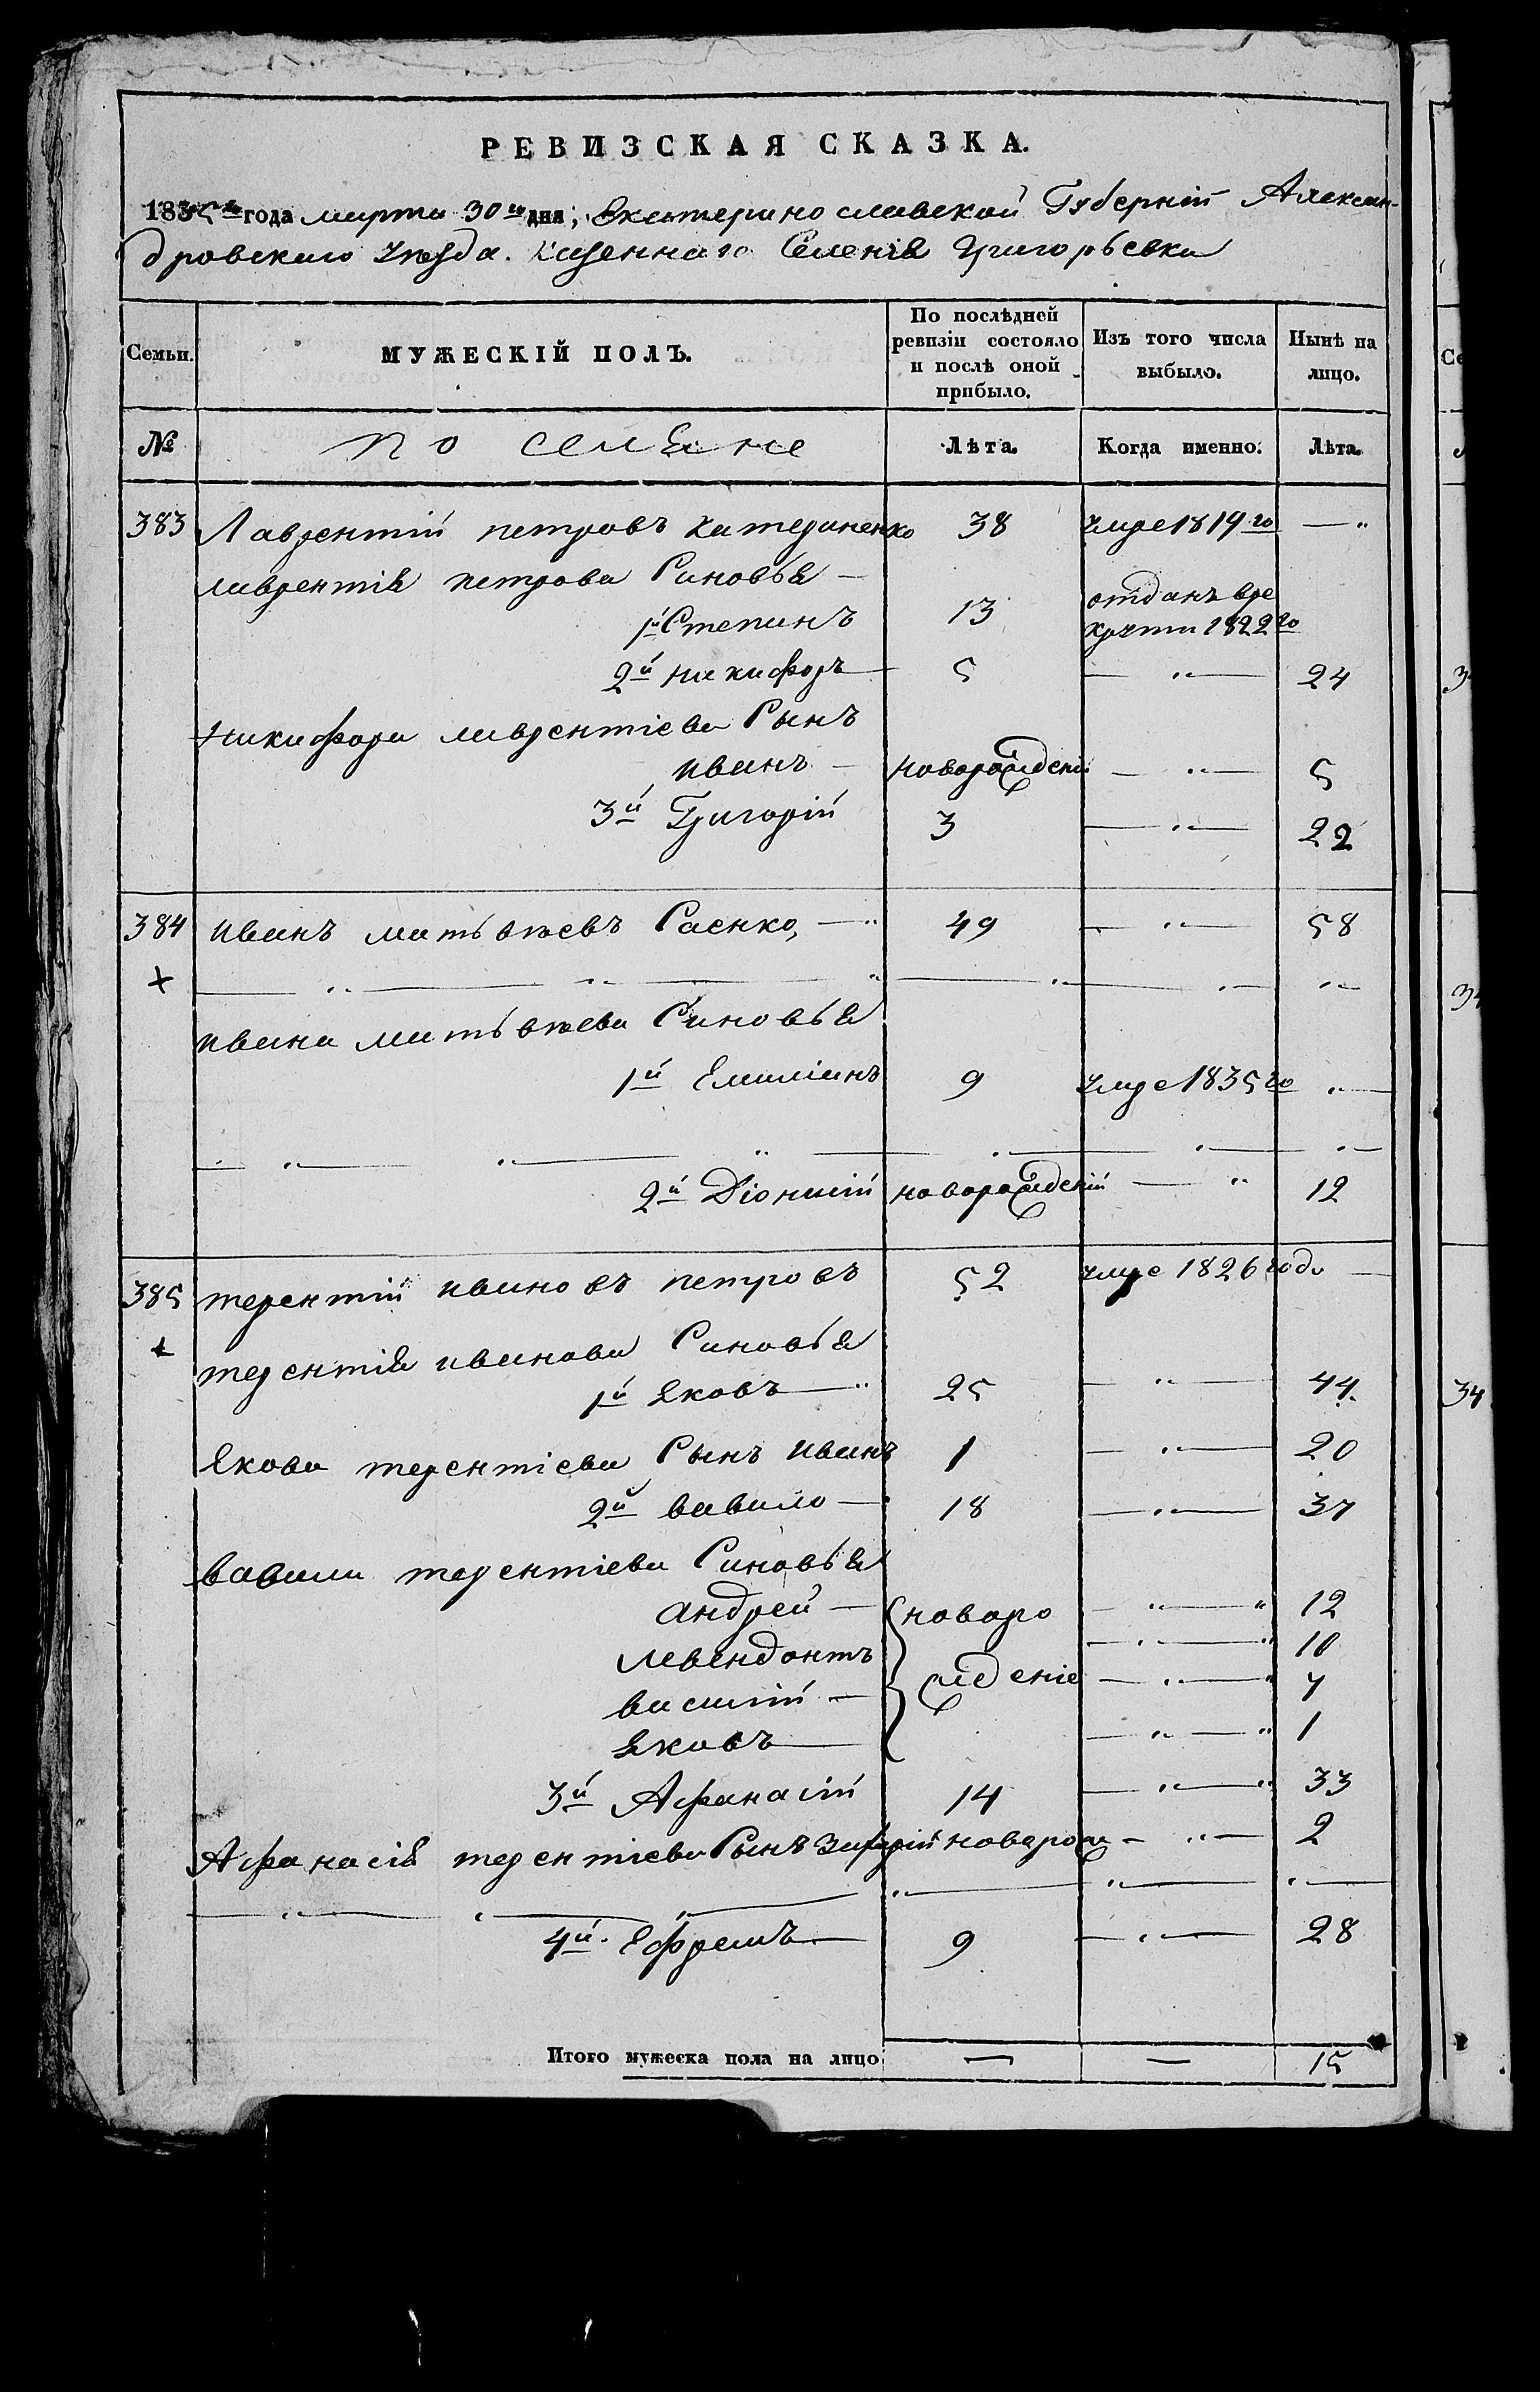 РЕВИЗСКАЯ СКАЗКА.
1835го года марта 30го дня, Екатеринославской Губерній Алексан-
дровскаго уезда. Казеннаго Селенія Григорьевки
Семьи.
МУЖЕСКІЙ ПОЛЪ.
По послѣдней ревизіи состояло и послѣ оной прибыло.
Изъ того числа выбыло.
Нынѣ на лицо.
№
поселяне
Лѣта.
Когда именно.
Лѣта.
383 Лаврентій петровъ Катериненко 38 умре 1819го — "
лаврентія петрова Синовья —
1й Степанъ 13 отданъ вре
крути 1822го
2й никифоръ — 5 — " — 24
никифора лаврентіева Сынъ
иванъ — новорожденій — " — 5
3й Григорій 3 — " — 22
384 иванъ матьвѣевъ Раенко, — " 49 — " — 58
+
ивана матьвѣева Синовья
1й Емиліянъ 9 умре 1835го " —
2й Діонисій новорожденій — " 12
385 терентій ивановъ петровъ 52 умре 1826 года —
+
терентія иванова Синовья
1й Яковъ — " 25 — " — 44
Якова терентіева Сынъ иванъ 1 — " — 20
2й вавило — 18 — " — 37
вавила терентіева Синовья
андрей — новоро — " — " 12
левендонтъ — " — " 10
василій — жденіе — " — " 7
Яковъ — — " — " 1
3й Афанасій 14 — " — " 33
Афанасія терентіева Сынъ Захарій новорож — " — 2
4й Ефремъ — 9 — " — 28
Итого мужеска пола на лицо — — 15